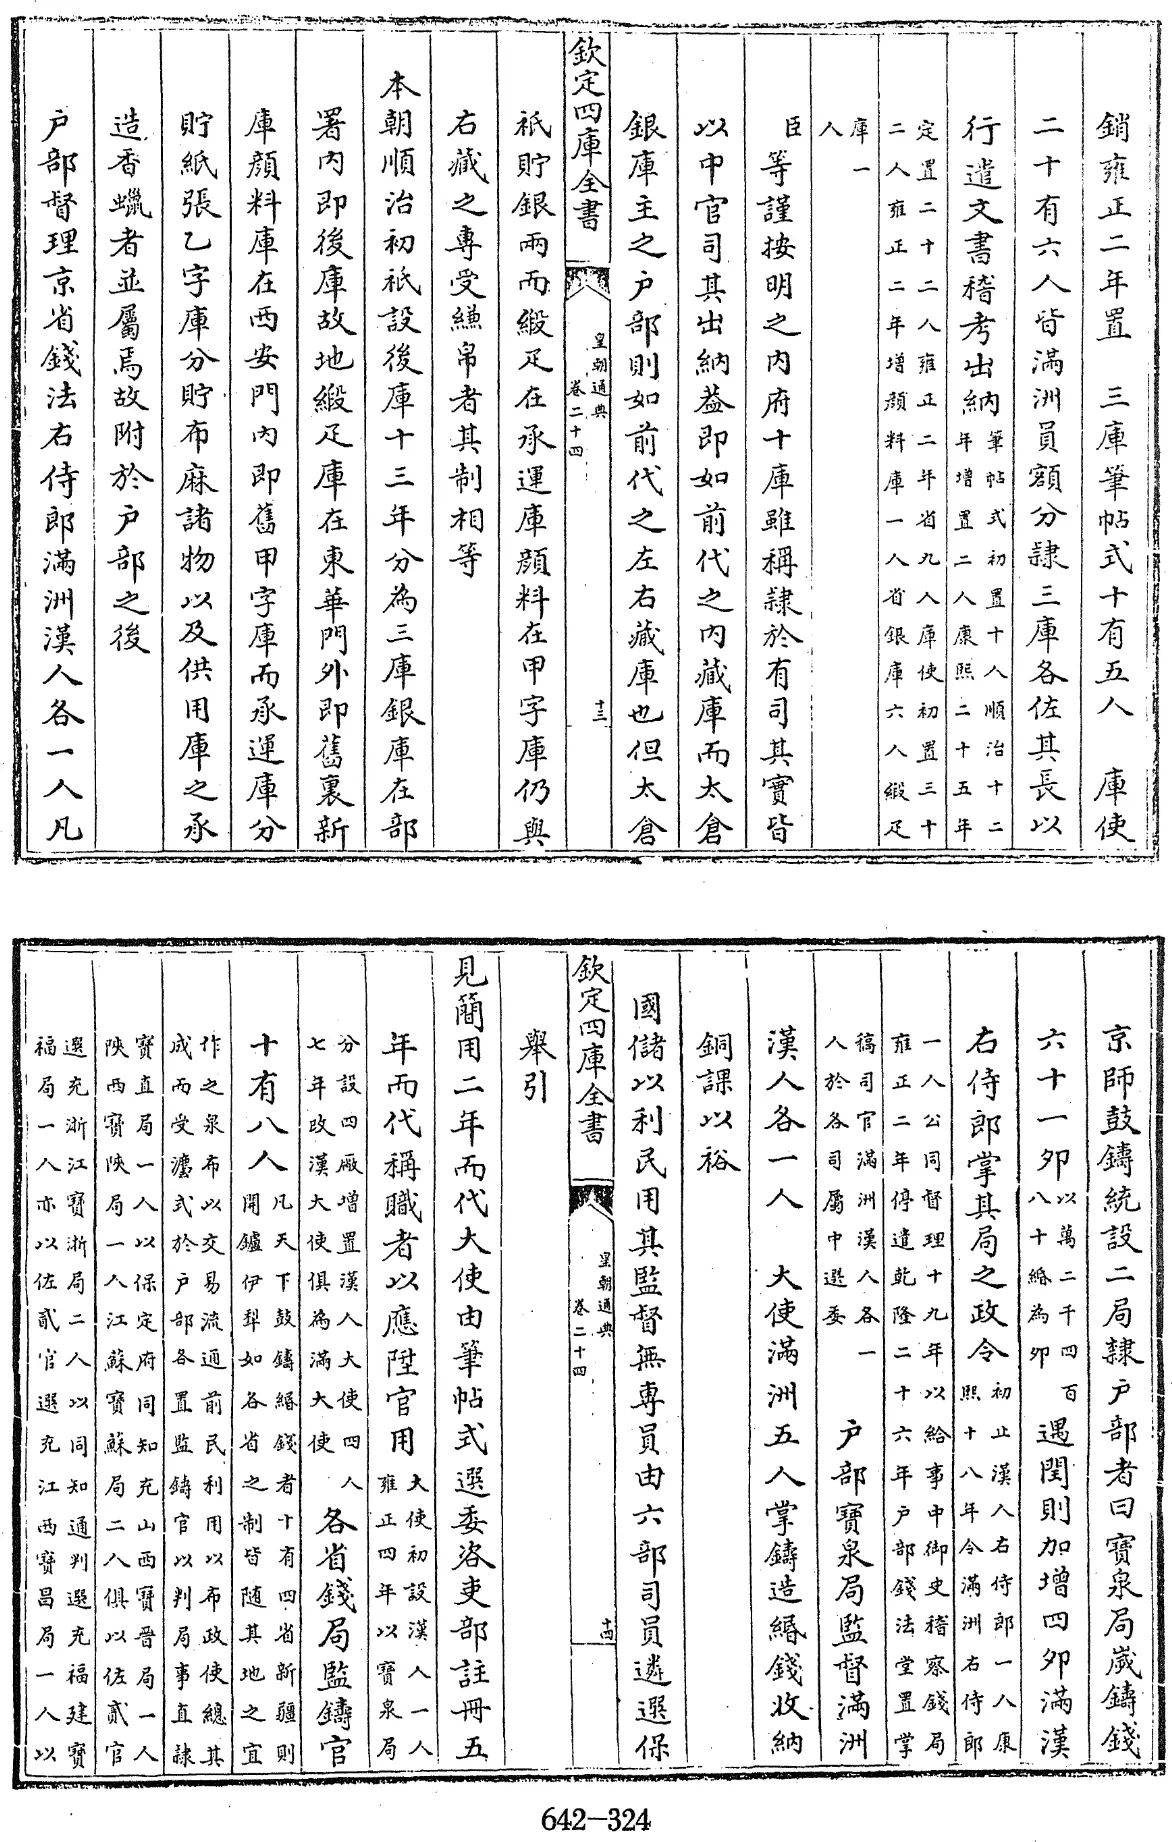 銷雍正二年置　三庫筆帖式十有五人　庫使
二十有六人皆滿洲員額分隸三庫各佐其長以
行遣文書稽考出納筆帖式初置十人順治十二年增置二人康熙二十五年
定置二十二人雍正二年省九人庫使初置三十二人雍正二年增顔料庫一人省銀庫六人緞疋
庫一人
臣等謹按明之内府十庫雖稱隸於有司其實皆
以中官司其出納葢即如前代之内藏庫而太倉
銀庫主之户部則如前代之左右藏庫也但太倉
欽定四庫全書
皇朝通典
卷二十四
十三
祇貯銀兩而緞疋在承運庫顔料在甲字庫仍與
右藏之專受縑帛者其制相等
本朝順治初祇設後庫十三年分為三庫銀庫在部
署内即後庫故地緞疋庫在東華門外即舊裏新
庫顔料庫在西安門内即舊甲字庫而承運庫分
貯紙張乙字庫分貯布麻諸物以及供用庫之承
造香蠟者並屬焉故附於户部之後
户部督理京省錢法右侍郎滿洲漢人各一人凡
京師鼓鑄統設二局隸户部者曰寶泉局歲鑄錢
六十一卯以萬二千四百八十緡為卯遇閏則加增四卯滿漢
右侍郎掌其局之政令初止漢人右侍郎一人康熙十八年令滿洲右侍郎
一人公同督理十九年以給事中御史稽察錢局雍正二年停遣乾隆二十六年户部錢法堂置掌
稿司官滿洲漢人各一人於各司屬中選委　户部寶泉局監督滿洲
漢人各一人　大使滿洲五人掌鑄造緡錢收納
銅課以裕
國儲以利民用其監督無專員由六部司員遴選保
欽定四庫全書
皇朝通典
卷二十四
十四
舉引
見簡用二年而代大使由筆帖式選委洛吏部註冊五
年而代稱職者以應陞官用大使初設漢人一人雍正四年以寶泉局
分設四廠增置漢人大使四人七年改漢大使俱為滿大使　各省錢局監鑄官
十有八人凡天下鼓鑄緡錢者十有四省新疆則開鑪伊犁如各省之制皆随其地之宜
作之泉布以交易流通前民利用以布政使總其成而受灋式於户部各置監鑄官以判局事直隸
寶直局一人以保定府同知充山西寶晉局一人陜西寶陜局一人江蘇寶蘇局二人俱以佐貳官
選充浙江寶浙局二人以同知通判選充福建寶福局一人亦以佐貳官選充江西寶昌局一人以
642-324